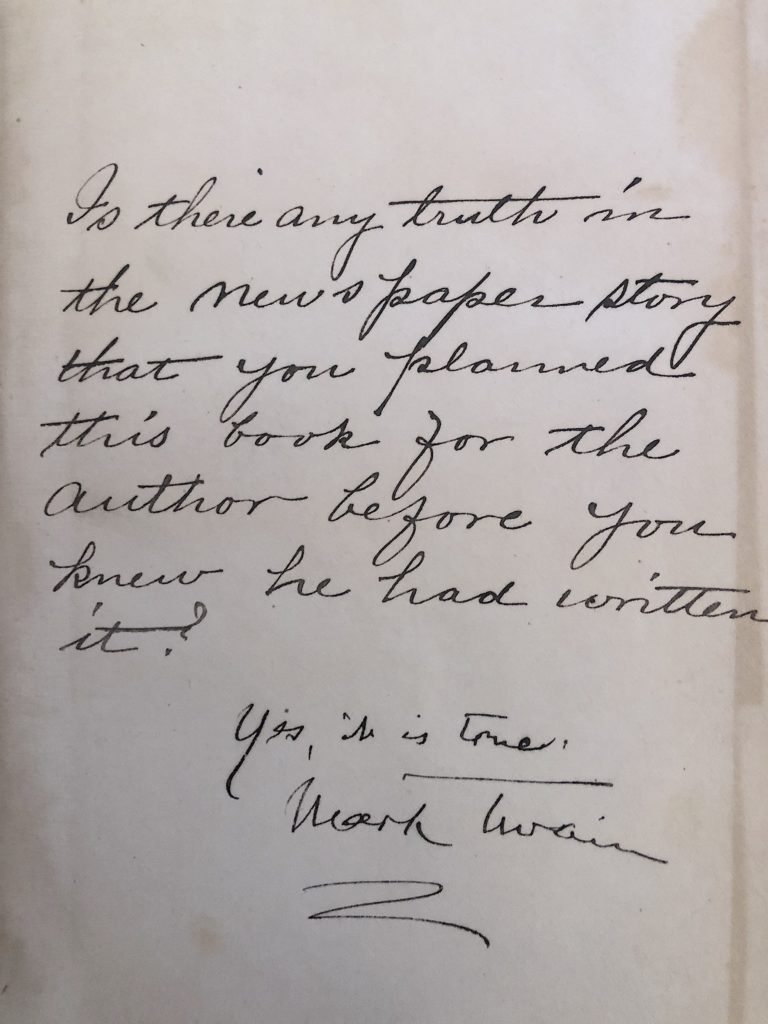 Is there any truth in
the newspaper story
that you planned
this book for the
author before you
knew he had written
it?
Yes, it is true.
Mark Twain